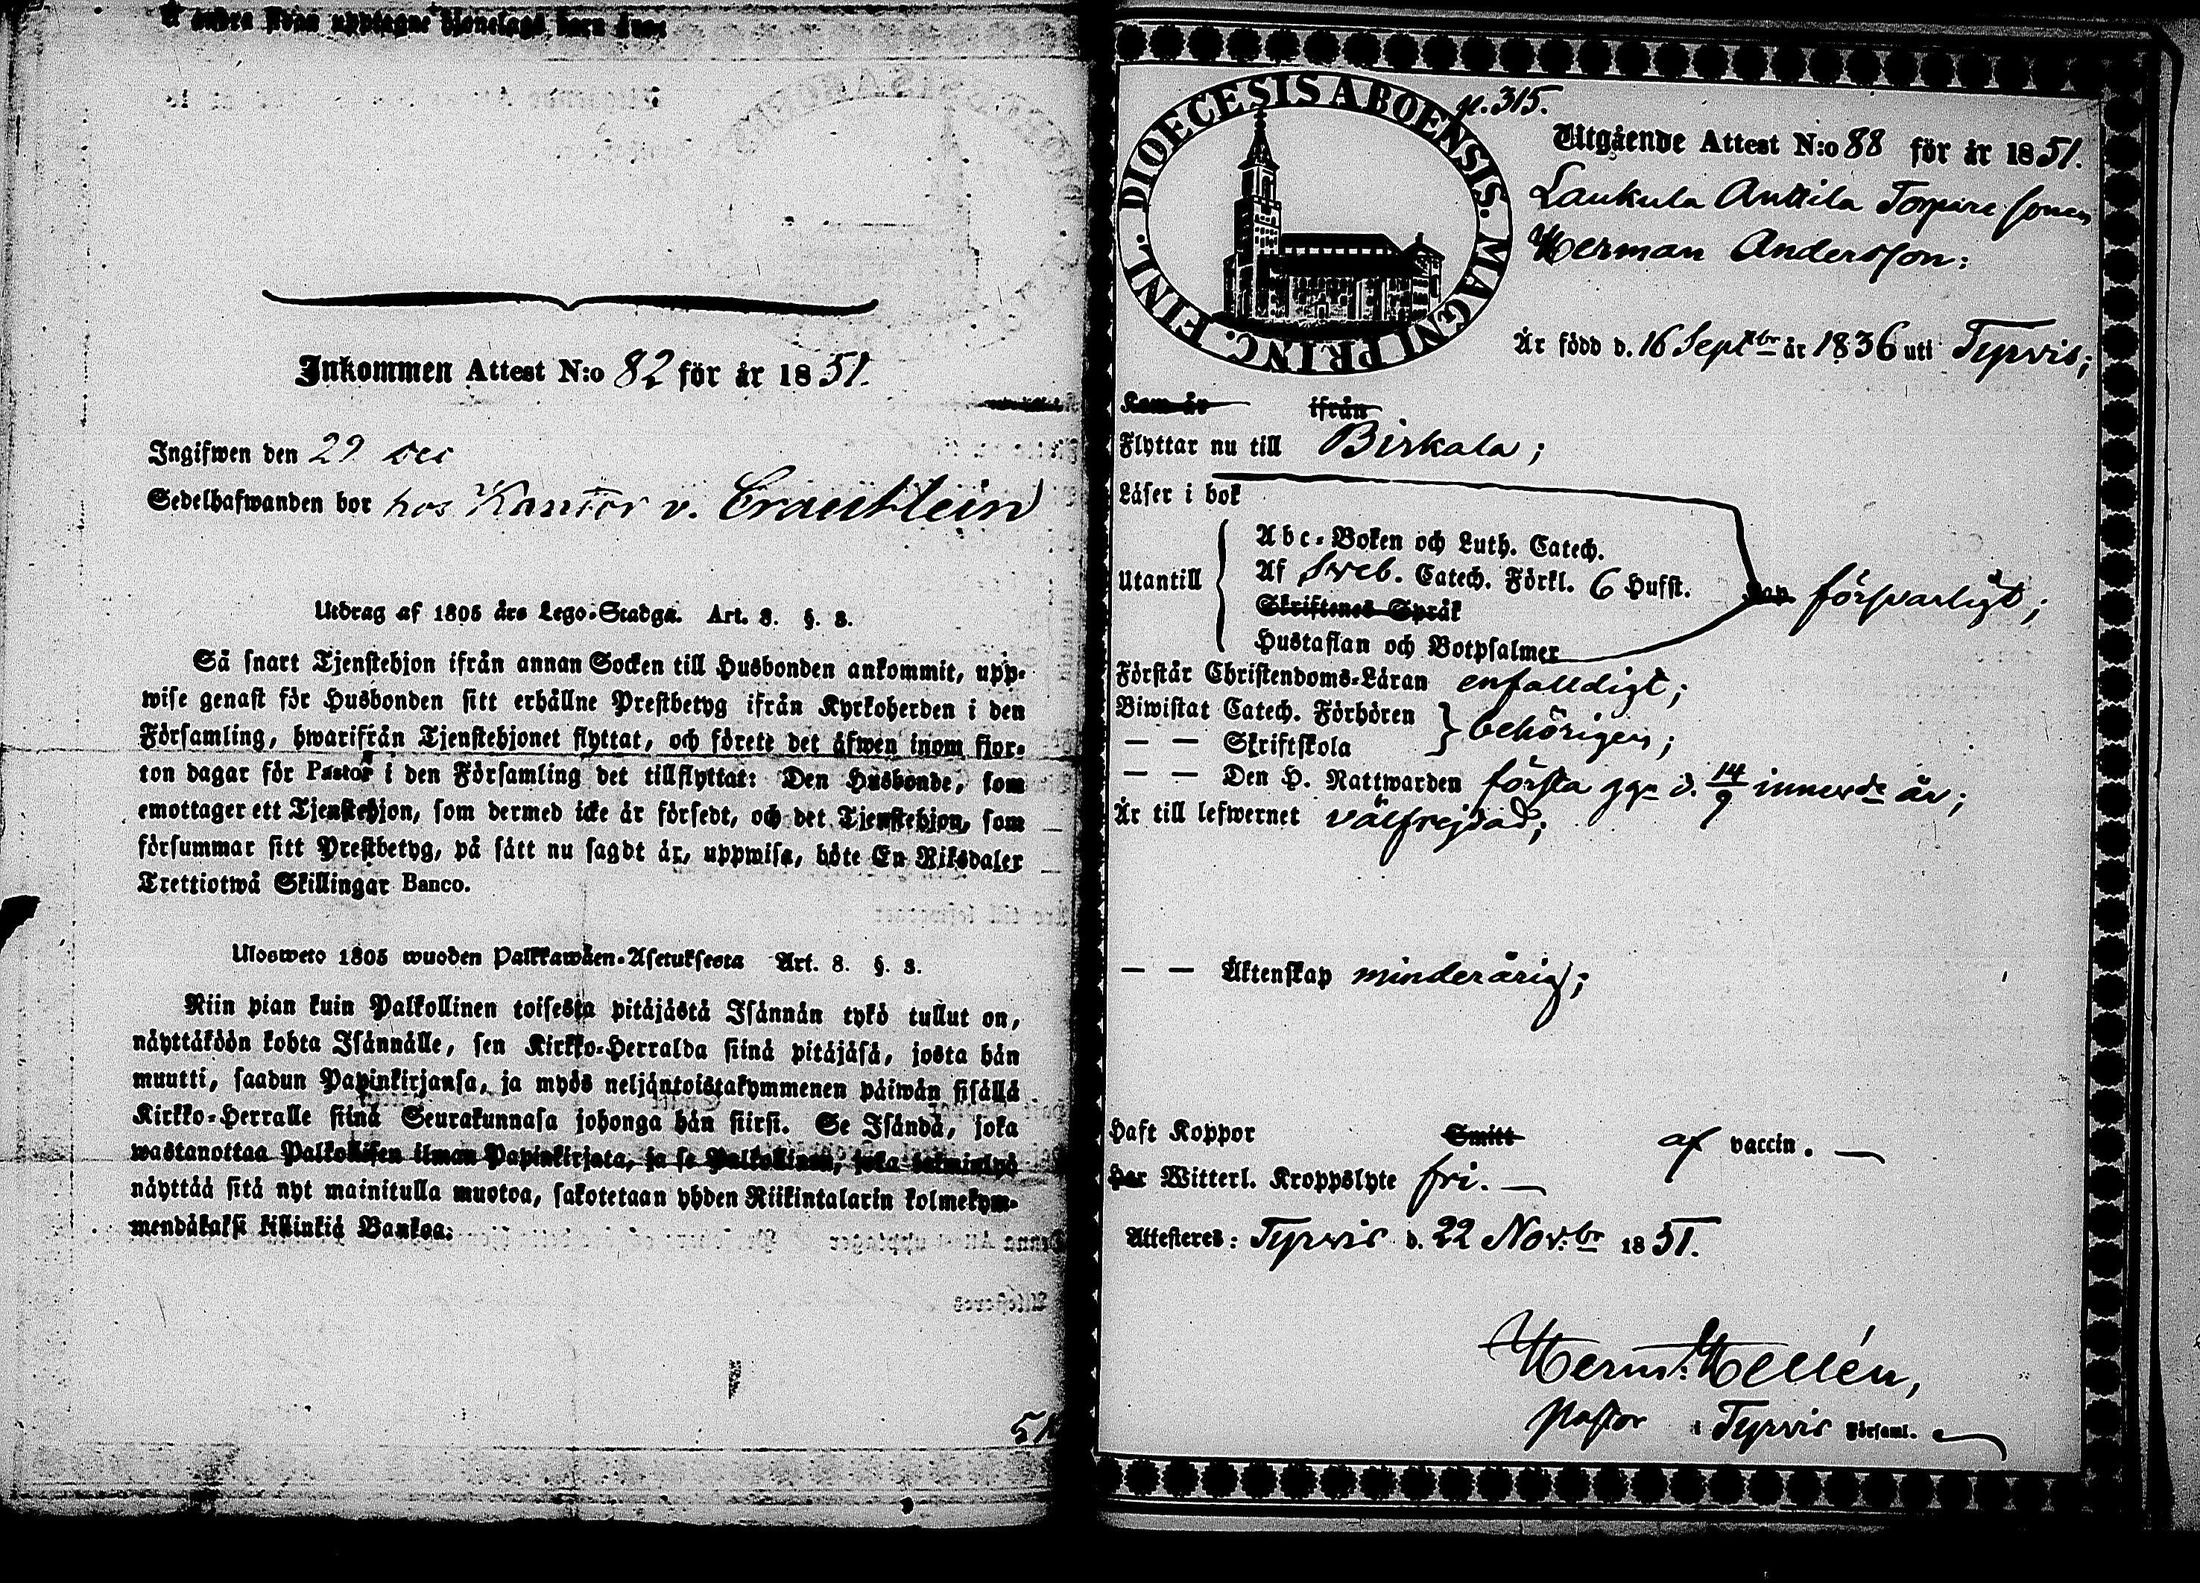 Å andra sidan upptagne Hionelags barn äro:
Inkommen Attest N:o 82 för år 1851.
Ingifwen den 29 Dec
Sedelhafwanden bor hos Kantor v. Crautlein
Utdrag af 1805 års Lego-Stadga. Art. 8. §. 3.
Så snart Tjenstehjon ifrån annan Socken till Husbonden ankommit, upp-
wise genast för Husbonden sitt erhållne Prestbetyg ifrån Kyrkoherden i den
Församling, hwarifrån Tjenstehjonet flyttat, och förete det äfwen inom fjor-
ton dagar för Pastor i den Församling det tillflyttat: Den Husbonde, som
emottager ett Tjenstehjon, som dermed icke är försedt, och det Tjenstehjon, som
försummar sitt Prestbetyg, på sätt nu sagdt är, uppwisa, böte En Riksdaler
Trettiotwå Skillingar Banco.
Ulosweto 1805 wuoden Palkkawäen-Asetuksesta Art. 8. §. 3.
Niin pian kuin Palkollinen toisesta pitäjästä Isännän tykö tullut on,
näyttäköön kohta Isännälle, sen Kirkko-Herralda siinä pitäjäsä, josta hän
muutti, saadun Papinkirjansa, ja myös neljäntoistakymmenen päiwän sisällä
Kirkko-Herralle siinä Seurakunnasa johonga hän siirsi. Se Isändä, joka
wastanottaa Palkollisen ilman Papinkirjata, ja se Palkollinen, joka laiminlyö
näyttää sitä nyt mainitulla muotoa, sakotetaan yhden Riikintalarin kolmekym-
mendäkaksi killinkiä Bankoa.
DIOECESIS ABOENSIS. MAGNI PRINC. FINL.
p. 315.
Utgående Attest N:o 88 för år 1851.
Laukula Anttila Torpare sonen
Herman Andersson:
Är född d. 16 Septbr år 1836 uti Tyrvis;
Kom år ifrån
Flyttar nu till Birkala;
Läser i bok
Abc-Boken och Luth. Catech.
Utantill Af Sveb. Catech. Förkl. 6 Hufst. försvarligt;
Skriftenes Språk
Hustaflan och Botpsalmer
Förstår Christendoms-Läran enfalldigt;
Biwistat Catech. Förhören behörigen;
— — Skriftskola
— — Den H. Nattwarden första gg. d. 14/9 innevde år;
Är till lefwernet välfrejdad;
— — Äktenskap minderårig;
Haft Koppor Smitt af vaccin. —
Har Witterl. Kroppslyte fri. —
Attesteres: Tyrvis d. 22 Nov:br 1851.
Herm: Hellén,
Pastor i Tyrvis Församl.